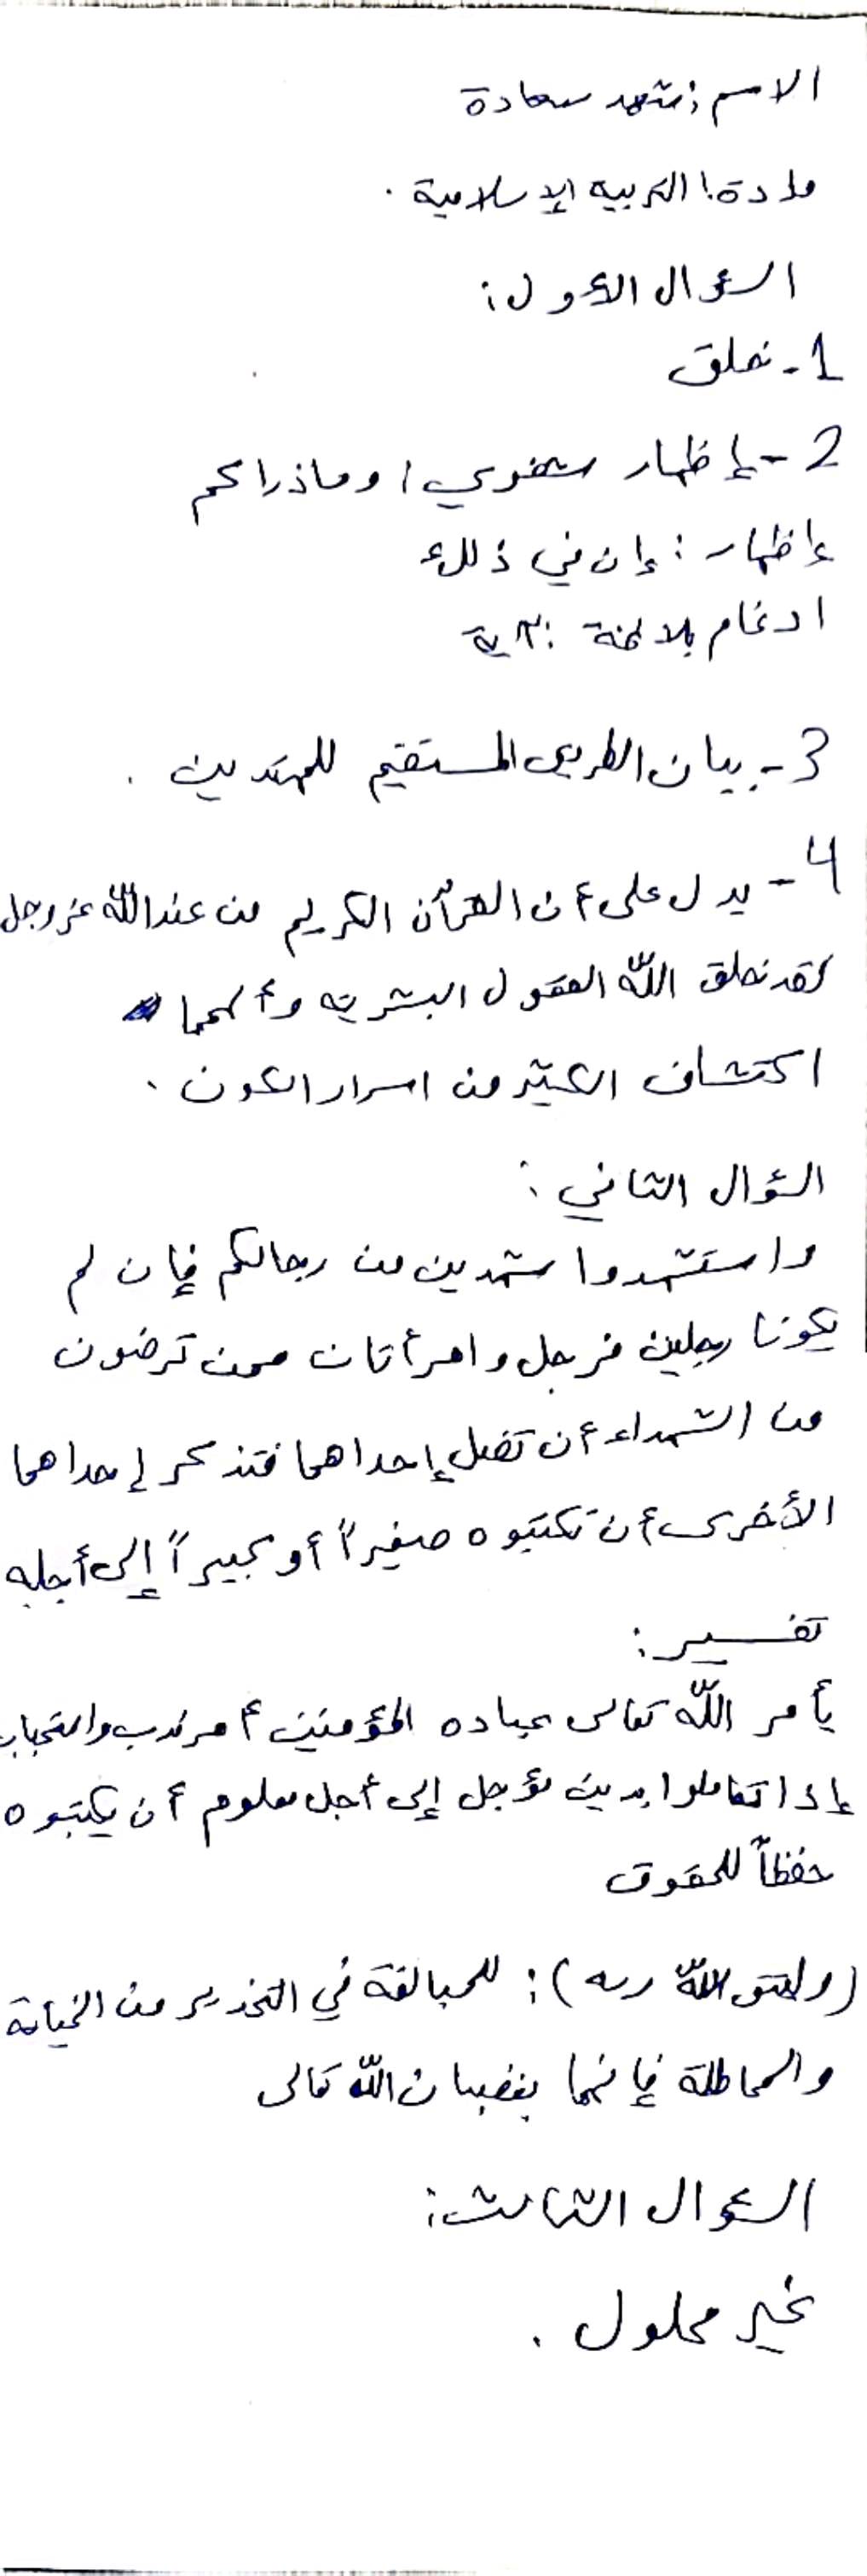 الاسم: شهد سعادة
مادة: التربيه الإسلامية .
السؤال الأول:
1- خلق
2- إظهار شفوي: وماذراكم
إظهار: إن في ذلك
ادغام بلا غنة :
3- بيان الطريق المستقيم للمهتدين .
4- يدل على أن القرآن الكريم من عند الله عز وجل
لقد خلق الله العقول البشرية وألهمها
اكتشاف الكثير من اسرار الكون .
السؤال الثاني :
واستشهدوا شهدين من رجالكم فإن لم
يكونا رجلين فرجل وامرأتان ممن ترضون
من الشهداء أن تضل إحداهما فتذكر إحداهما
الأخرى أن تكتبوه صغيراً أو كبيراً إلى أجله
تفسير:
يأمر الله تعالى عباده المؤمنين أمر ندب واستحباب
إذا تعاملوا بدين مؤجل إلى أجل معلوم أن يكتبوه
حفظاً للحقوق
(وليتق الله ربه): للمبالغة في التحذير من الخيانة
والمماطلة فإنهما يغضبان الله تعالى
السؤال الثالث:
غير محلول .